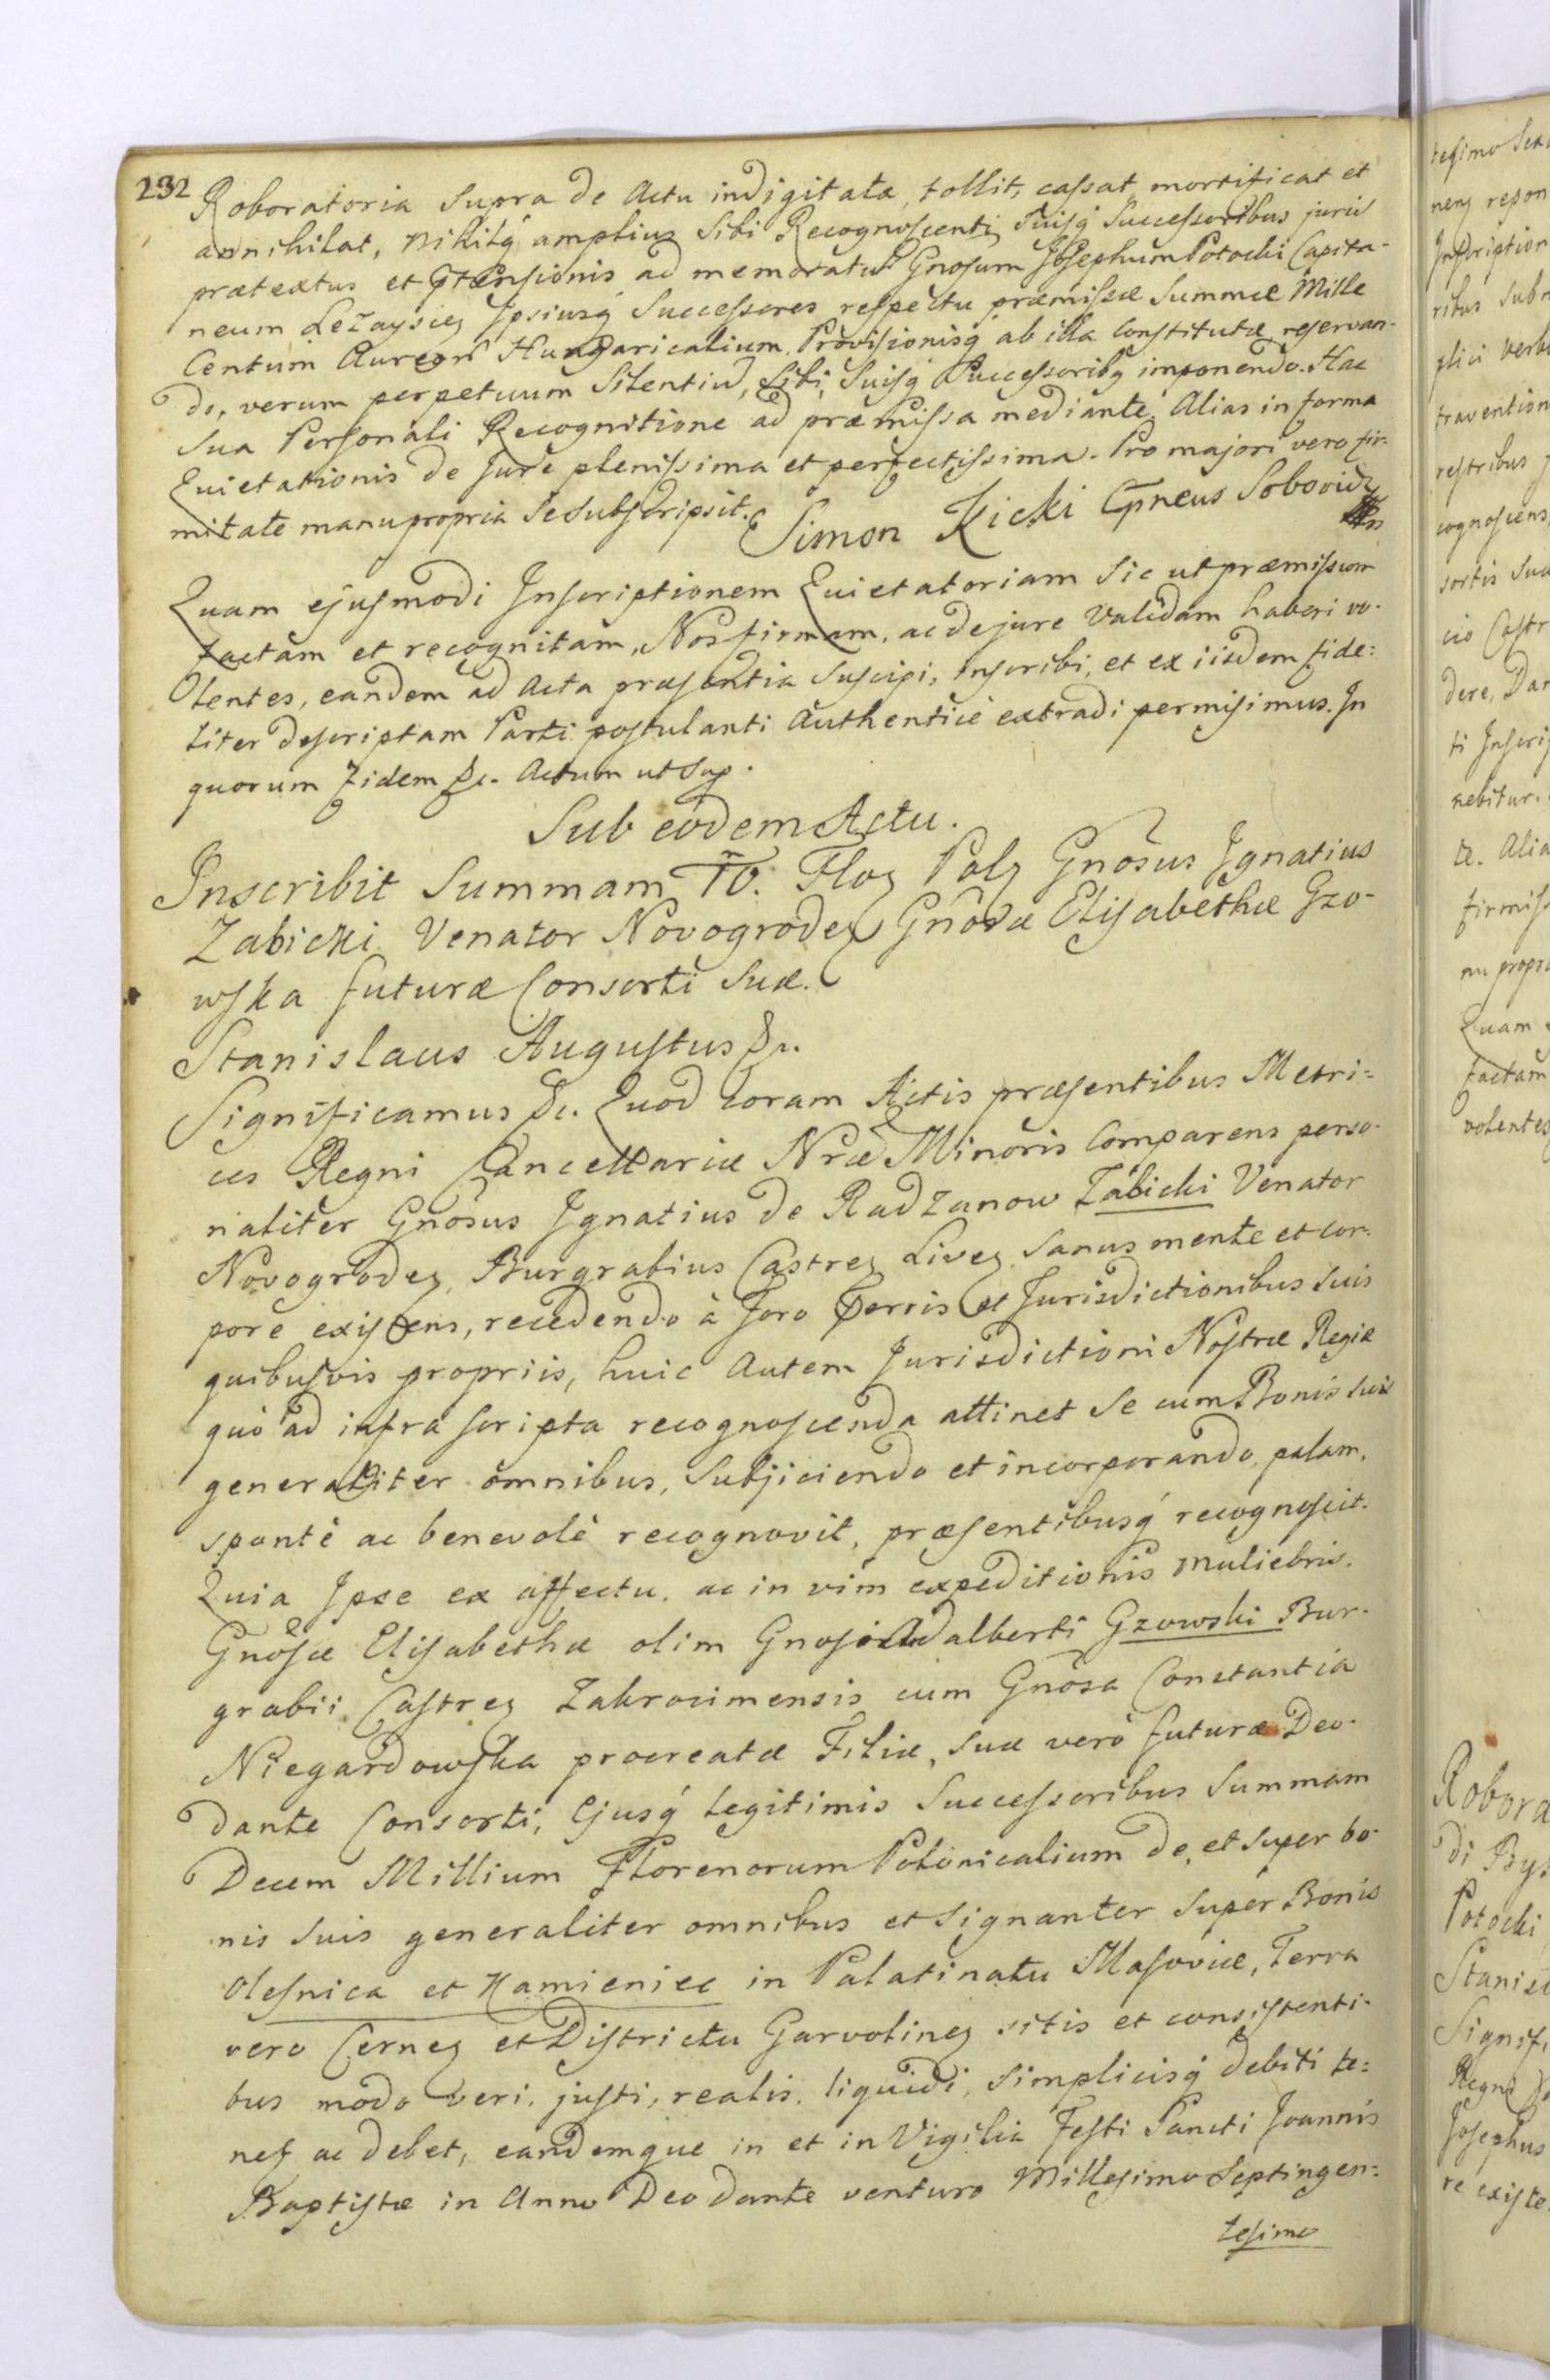 232
Roboratoria Supra de Actu indigitata, tollit, cassat mortificat et
annihilat, nihilq́ amplius Sibi Recognoscenti Suisq́ Successoribus juris
prætextus et prætensionis ad memoratum Gnosum Josephum Potocki Capita-
neum Leżayscen Ipsiusq́ Successores respectu præmissæ Summæ Mille
Centum Aureor Hungaricalium Provisionisq́ ab illa constitutæ reservan-
do, verum perpetuum Silentium, Sibi, Suisq́ Successoribq imponendo. Hac
Sua Personali Recognitione ad præmissa mediante. Alias in forma
Quietationis de Jure plenissima et perfectissima. Pro majori vero fir-
mitate manu propria Se Subscripsit. Simon Kicki Cpneus Sobovidz
Quam ejusmodi Inscriptionem Quietatoriam Sic ut præmissum
factam et recognitam, Nos firmam, ac de jure Validam haberi vo-
lentes, eandem ad Acta præsentia Suscipi, inscribi, et ex iisdem fide:
liter descriptam Parti postulanti Authenticè extradi permisimus. In
quorum Fidem &c. Actum ut Sup.
Sub eodem Actu.
Inscribit Summam 10. Floz Polz Gnosus Ignatius
Zabicki Venator Novogroden Gnosæ Elisabethæ Gzo-
wska futuræ Consorti Suæ.
Stanislaus Augustus &c.
Significamus &c. Quod coram Actis præsentibus Metri=
ces Regni Cancellariæ Nræ Minoris Comparens perso-
naliter Gnosus Ignatius de Radzanow Zabicki Venator
Novogroden, Burgrabius Castren Liven Sanus mente et cor-
pore existens, recedendo à Foro Terris et Jurisdictionibus Suis
quibusvis propriis, huic Autem Jurisdictioni Nostræ Regiæ
quò ad infra scripta recognoscenda attinet Se cum Bonis Suis
generaliter omnibus, Subjiciendo et incorporando, palam,
spontè ac benevolè recognovit, præsentibusq́ recognoscit.
Quia Ipse ex affectu, ac in vim expeditionis muliebris.
Gnosæ Elisabethæ olim Gnosi Adalberti Gzowski Bur-
grabii Castren Zakrocimensis cum Gnosa Constantia
Niegardowska procreatæ Filiæ, Suæ verò futuræ Deo-
dante Consorti, Ejusq́ legitimis Successoribus Summam
Decem Millium Florenorum Polonicalium de, et Super bo-
nis Suis generaliter omnibus et Signanter Super Bonis
Olesnica et Kamieniec in Palatinatu Masoviæ, Terra
vero Cernen et Districtu Garvolinen sitis et consistenti-
bus modo veri, justi, realis, liquidi, Simplicisq́ debiti te=
net ac debet, eandemque in et in Vigilia Festi Sancti Joannis
Baptistæ in Anno Deo dante venturo Millesimo Septingen=
tesimo
tesimo Sex
nens repon
Inscription
ribus Subm
plici verb
travention
restribus
cognoscens
sortis Suæ
cio Castr
dere, Dan
ti Inscri
nebitur.
te. Alia
firmiss
nu propri
Quam
factam
volentes
Robora
di Bys
Potocki
Stanisl
Signif.
Regni
Josephus
re existe